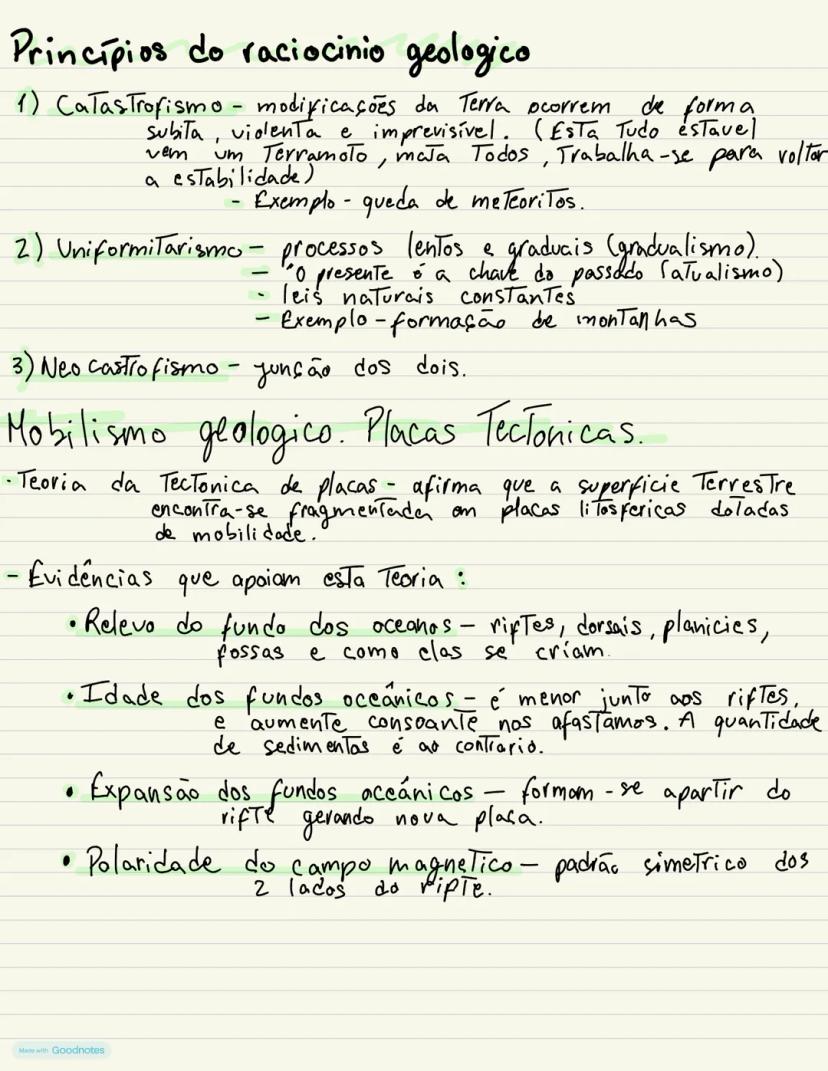 Princípios do raciocinio geologico
1) Catastrofismo - modificações da Terra ocorrem de forma
subita, violenta e imprevisível. (Esta Tudo estavel
vem um Terramoto, mata Todos, Trabalha-se para voltar
a estabilidade)
- Exemplo - queda de meteoritos.
2) Uniformitarismo - processos lentos e graduais (gradualismo).
- "O presente é a chave do passado (atualismo)
- leis naturais constantes
- Exemplo - formação de montanhas
3) Neo castrofismo - junção dos dois.
Mobilismo geologico. Placas Tectonicas.
· Teoria da Tectonica de placas - afirma que a superficie Terrestre
encontra-se fragmentada em placas litosfericas dotadas
de mobilidade.
- Evidências que apoiam esta Teoria :
• Relevo do fundo dos oceanos - riftes, dorsais, planicies,
fossas e como elas se criam.
• Idade dos fundos oceânicos - é menor junto aos riftes,
e aumente consoante nos afastámos. A quantidade
de sedimentos é ao contrario.
• Expansão dos fundos oceánicos - formam-se apartir do
rifte gerando nova placa.
• Polaridade do campo magnetico - padrão simetrico dos
2 lados do rifte.
Made with Goodnotes